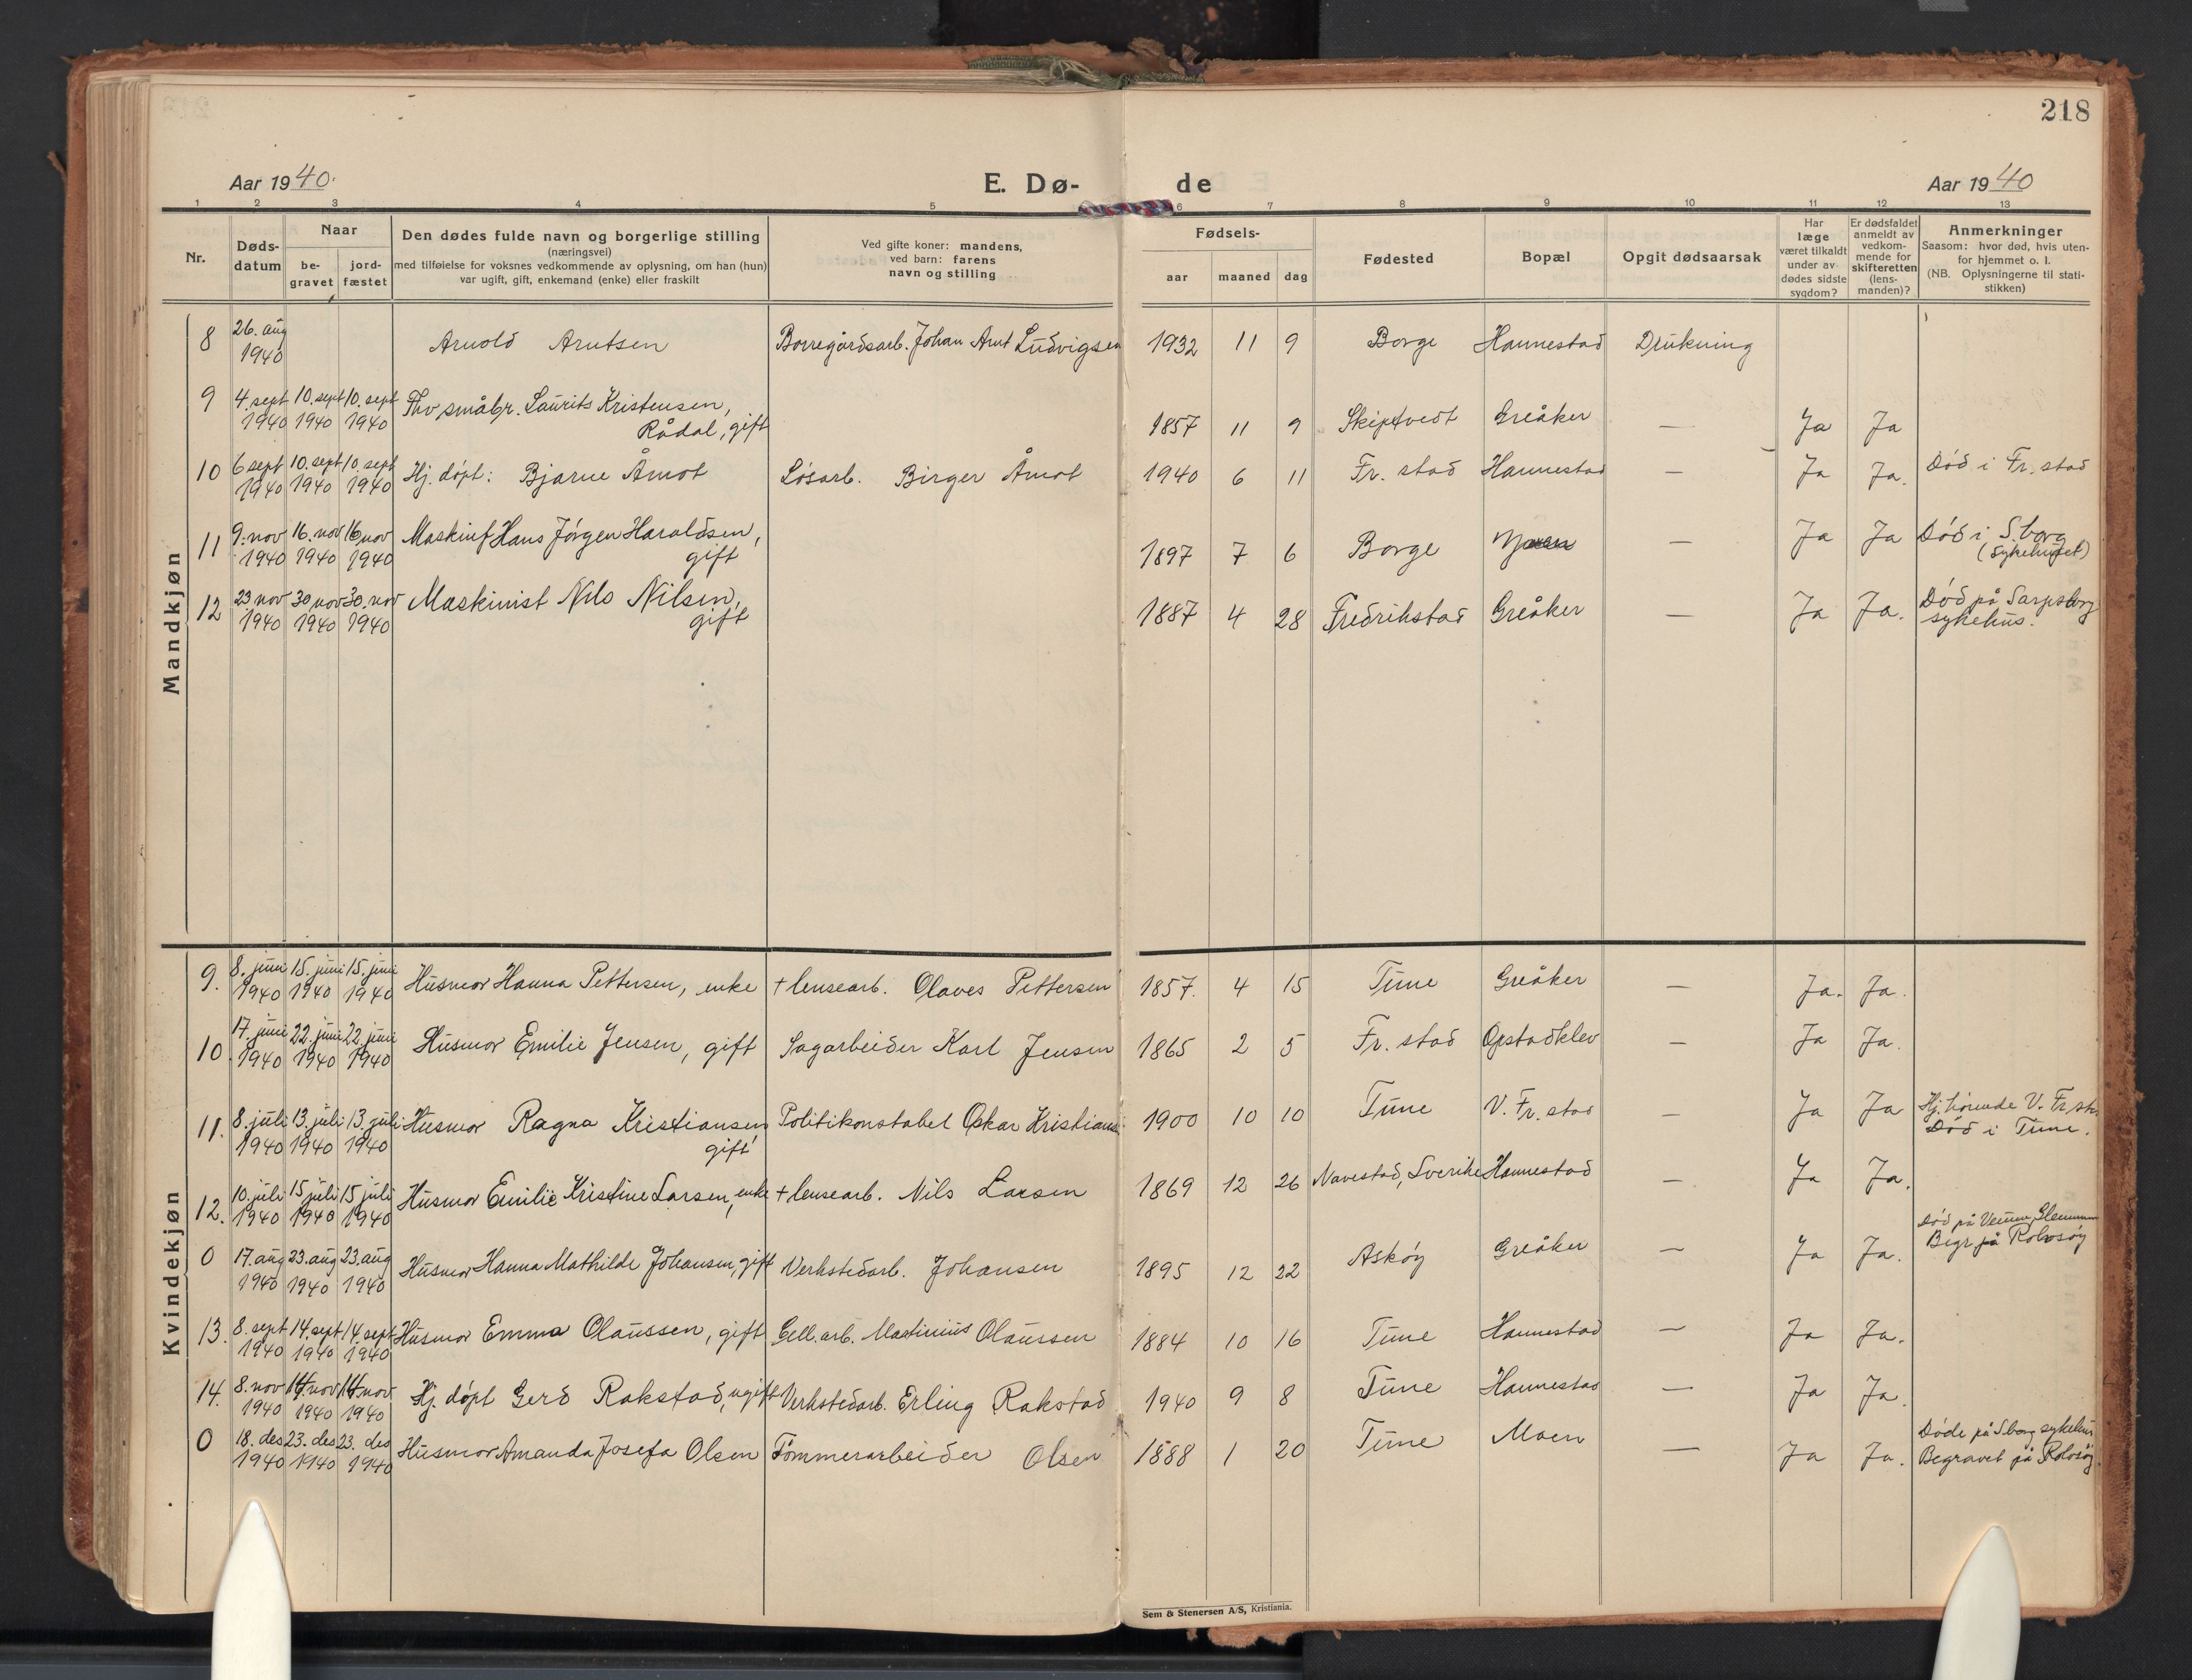 218
Aar 1940. E. Dø- de Aar 1940
1 2 3 4 5 6 7 8 9 10 11 12 13
Nr.
Døds-
datum
Naar
be-
gravet
jord-
fæstet
Den dødes fulde navn og borgerlige stilling
(næringsvei)
med tilføielse for voksnes vedkommende av oplysning, om han (hun)
var ugift, gift, enkemand (enke) eller fraskilt
Ved gifte koner: mandens,
ved barn: farens
navn og stilling
Fødsels-
aar maaned dag
Fødested
Bopæl
Opgit dødsaarsak
Har
læge
været tilkaldt
under av-
dødes sidste
sygdom?
Er dødsfaldet
anmeldt av
vedkom-
mende for
skifteretten
(lens-
manden)?
Anmerkninger
Saasom: hvor død, hvis uten-
for hjemmet o. l.
(NB. Oplysningerne til stati-
stikken)
Mandkjøn
8 26. aug 1940 Arnold Arntsen Borregårdsarb. Johan Arnt Ludvigsen 1932 11 9 Borge Hannestad Drukning
9 4. sept 1940 10. sept 1940 10. sept 1940 Fhv småbr. Laurits Kristensen,
Rådal, gift 1857 11 9 Skiptvedt Greåker — Ja Ja
10 6 sept 1940 10. sept 1940 10. sept 1940 Hj. døpt: Bjarne Åmot Løsarb. Birger Åmot 1940 6 11 Fr. stad Hannestad — Ja Ja. Død i Fr. stad
11 9. nov 1940 16. nov 1940 16 nov 1940 Maskinf Hans Jørgen Haraldsen,
gift 1897 7 6 Borge — Ja Ja Død i S.borg
(sykehuset)
12 23 nov 1940 30 nov 1940 30. nov 1940 Maskinist Nils Nilsen,
gift 1887 4 28 Fredrikstad Greåker — Ja Ja. Død på Sarpsborg
sykehus.
Kvindekjøn
9. 8. juni 1940 15. juni 1940 15. juni 1940 Husmor Hanna Pettersen, enke + lensearb. Olaves Pettersen 1857. 4 15 Tune Greåker — Ja. Ja.
10. 17. juni 1940 22. juni 1940 22. juni 1940 Husmor Emilie Jensen, gift Sagarbeider Karl Jensen 1865 2 5 Fr. stad Opstadklev — Ja Ja.
11. 8. juli 1940 13. juli 1940 13. juli 1940 Husmor Ragna Kristiansen,
gift Politikonstabel Oskar Kristians. 1900 10 10 Tune V. Fr. stad — Ja Ja Hj. hørende V. Fr.st.
Død i Tune.
12. 10. juli 1940 15 juli 1940 15 juli 1940 Husmor Emilie Kristine Larsen, enke + lensearb. Nils Larsen 1869 12 26 Navestad, Sverike Hannestad — Ja Ja.
0 17. aug 1940 23. aug 1940 23. aug 1940 Husmor Hanna Mathilde Johansen, gift Verkstedarb. Johansen 1895 12 22 Askøy Greåker — Ja Ja. Død på Glemmen
Begr på Rolvsøy
13. 8. sept 1940 14. sept 1940 14. sept 1940 Husmor Emma Olaussen, gift Cell. arb. Martinius Olaussen 1884 10 16 Tune Hannestad — Ja Ja.
14. 8. nov 1940 14. nov 1940 14. nov 1940 Hj. døpt Gerd Rakstad, ugift Verkstedarb. Erling Rakstad 1940 9 8 Tune Hannestad — Ja Ja.
0 18. des 1940 23. des 1940 23. des 1940 Husmor Amanda Josefa Olsen Tømmerarbeider Olsen 1888 1 20 Tune Moen — Ja Ja. Døde på S.borg sykehus
Begravet på Rolvsøy.
Sem & Stenersen A/S, Kristiania.